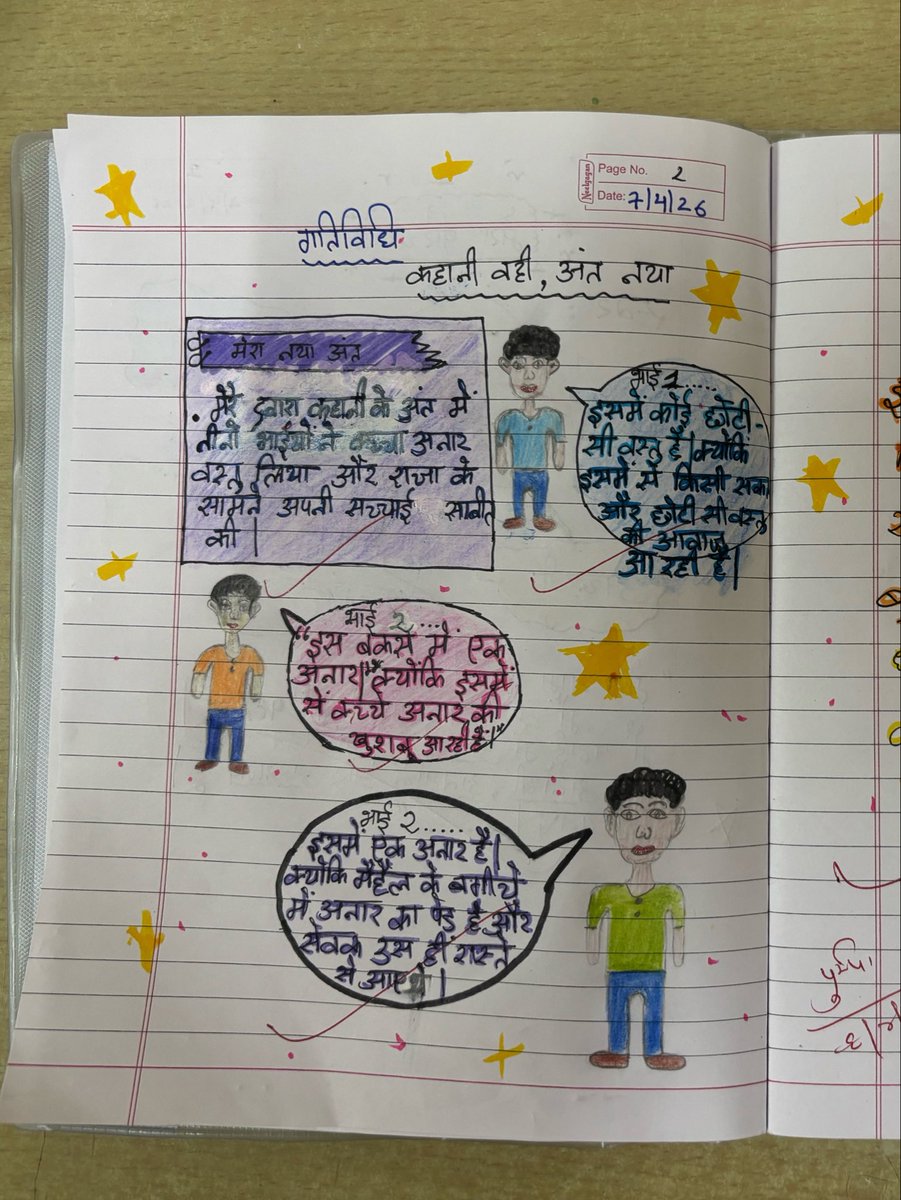 Neelgagan
Page No. 2
Date: 7/4/26
गतिविधि
कहानी वही, अंत नया
मेरा नया अंत
. मेरे द्वारा कहानी के अंत में
तीनों भाईयों ने कच्चा अनार
वस्तु लिया और राजा के
सामने अपनी सच्चाई साबीत
की |
भाई 1.....
इसमें कोई छोटी-
सी वस्तु है| क्योंकि
इसमें से किसी सका
और छोटी सी वस्तु
की आवाज़
आ रही है|
भाई 2....
"इस बकसे में एक
अनार|" "क्योंकि इसमें
से कच्चे अनार की
खुशबू आ रही है|"
भाई २.....
इसमें एक अनार है|
क्योंकि मैहैल के बगीचे
में अनार का पेड़ है और
सेवक उस ही रास्ते
से आए |